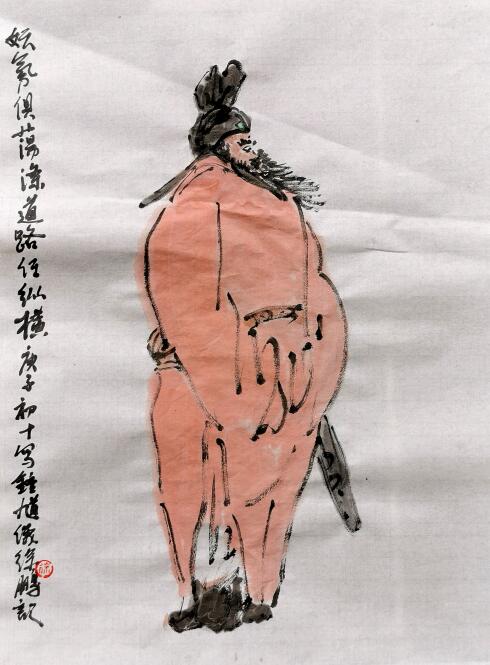 妖氛俱荡涤道路任纵横庚子初十写钟馗仪徐鹏記